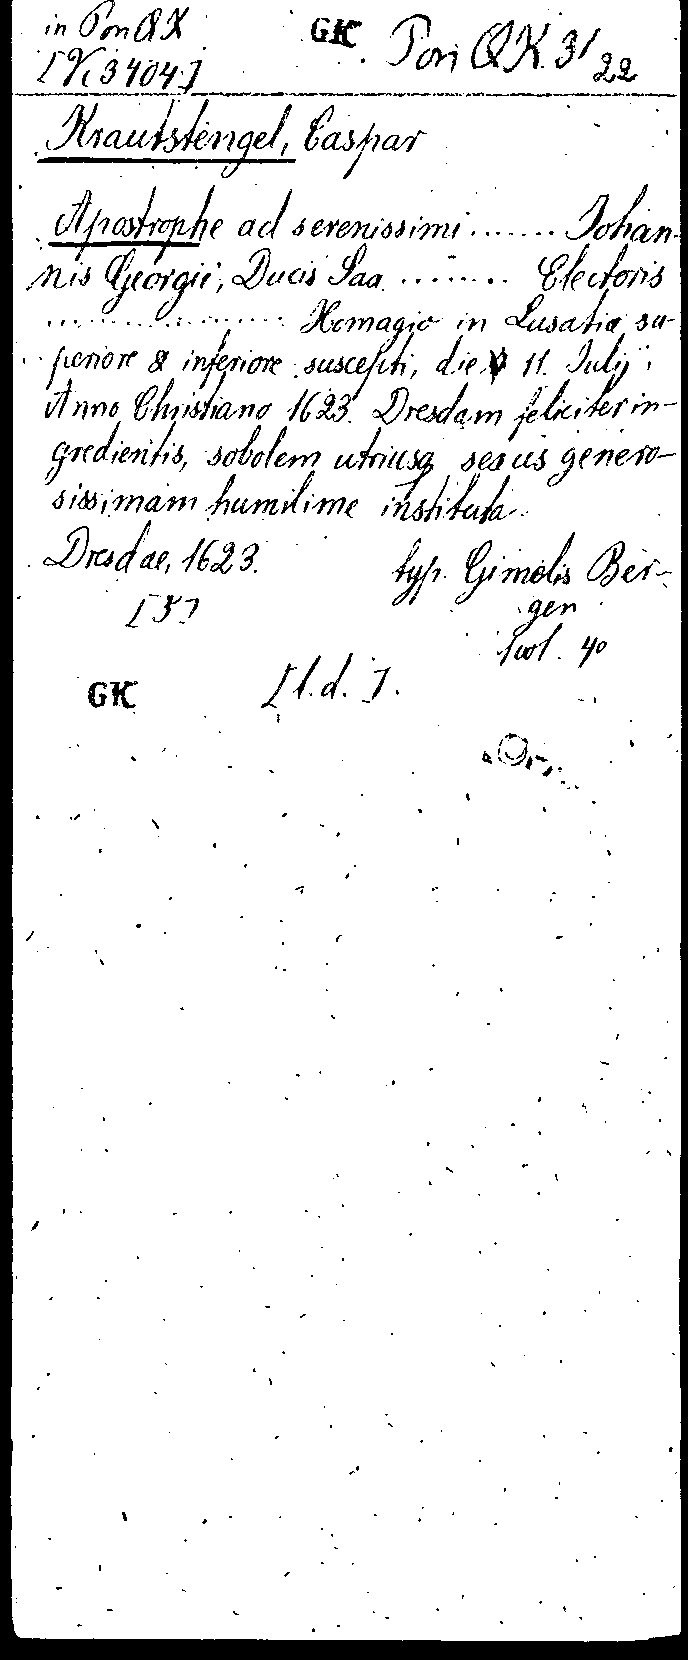 in Pon QK
GK Pon QK. 31/22
[VI, 3404]
Krautstengel, Caspar
Apostrophe ad serenissimi ....... Johan-
nis Georgii, Ducis Sax ........ Electoris
................ Homagio in Lusatia su-
periore & inferiore suscepti, die 11. Julij
Anno Christiano 1623. Dresdam feliciter in-
gredientis, sobolem utriusq sexus genero-
sissimam humilime instituta.
Dresdae, 1623. typ. Gimelis Ber-
gen
4°
GK [l. d.].